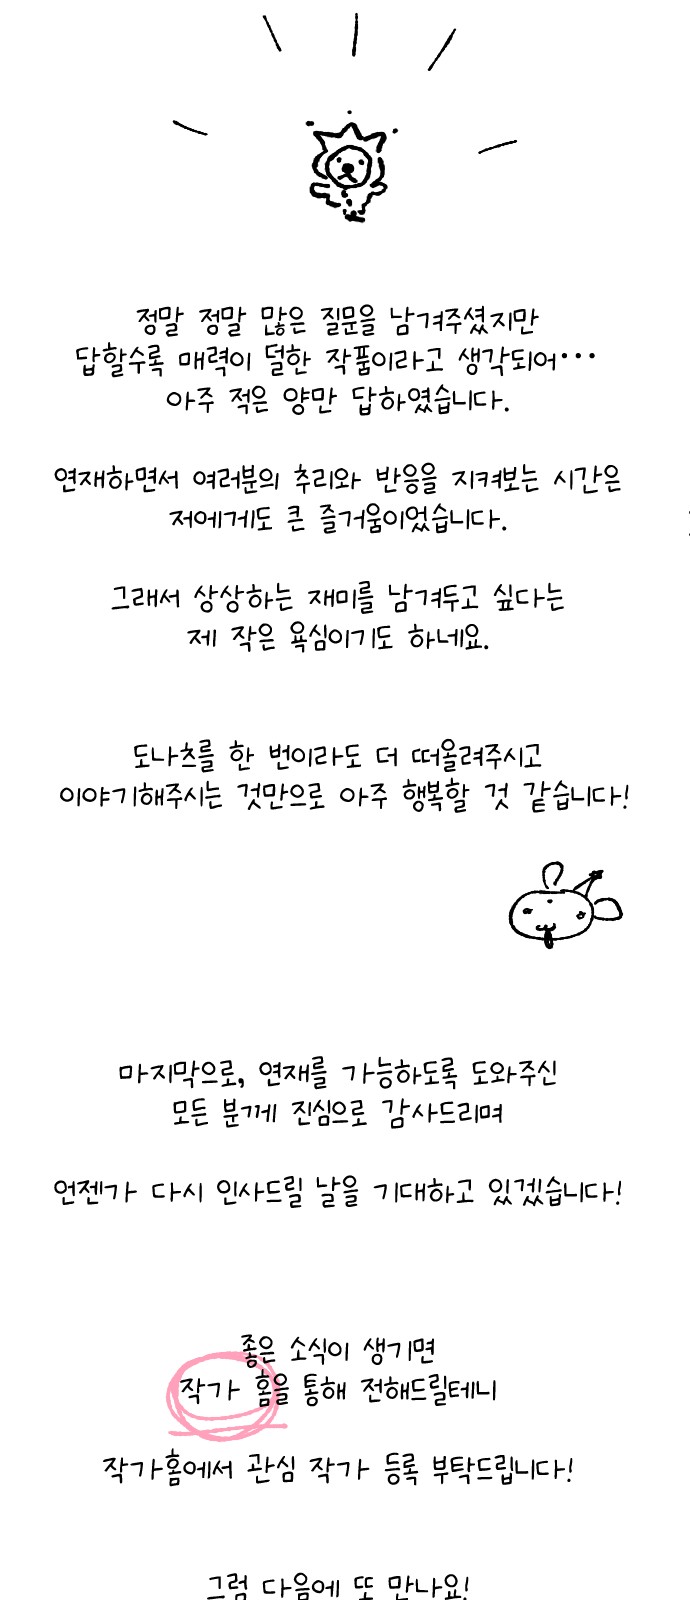 정말 정말 많은 질문을 남겨주셨지만
답할수록 매력이 덜한 작품이라고 생각되어···
아주 적은 양만 답하였습니다.
연재하면서 여러분의 추리와 반응을 지켜보는 시간은
저에게도 큰 즐거움이었습니다.
그래서 상상하는 재미를 남겨두고 싶다는
제 작은 욕심이기도 하네요.
도나츠를 한 번이라도 더 떠올려주시고
이야기해주시는 것만으로 아주 행복할 것 같습니다!
마지막으로, 연재를 가능하도록 도와주신
모든 분께 진심으로 감사드리며
언젠가 다시 인사드릴 날을 기대하고 있겠습니다!
좋은 소식이 생기면
작가 홈을 통해 전해드릴테니
작가홈에서 관심 작가 등록 부탁드립니다!
그럼 다음에 또 만나요!